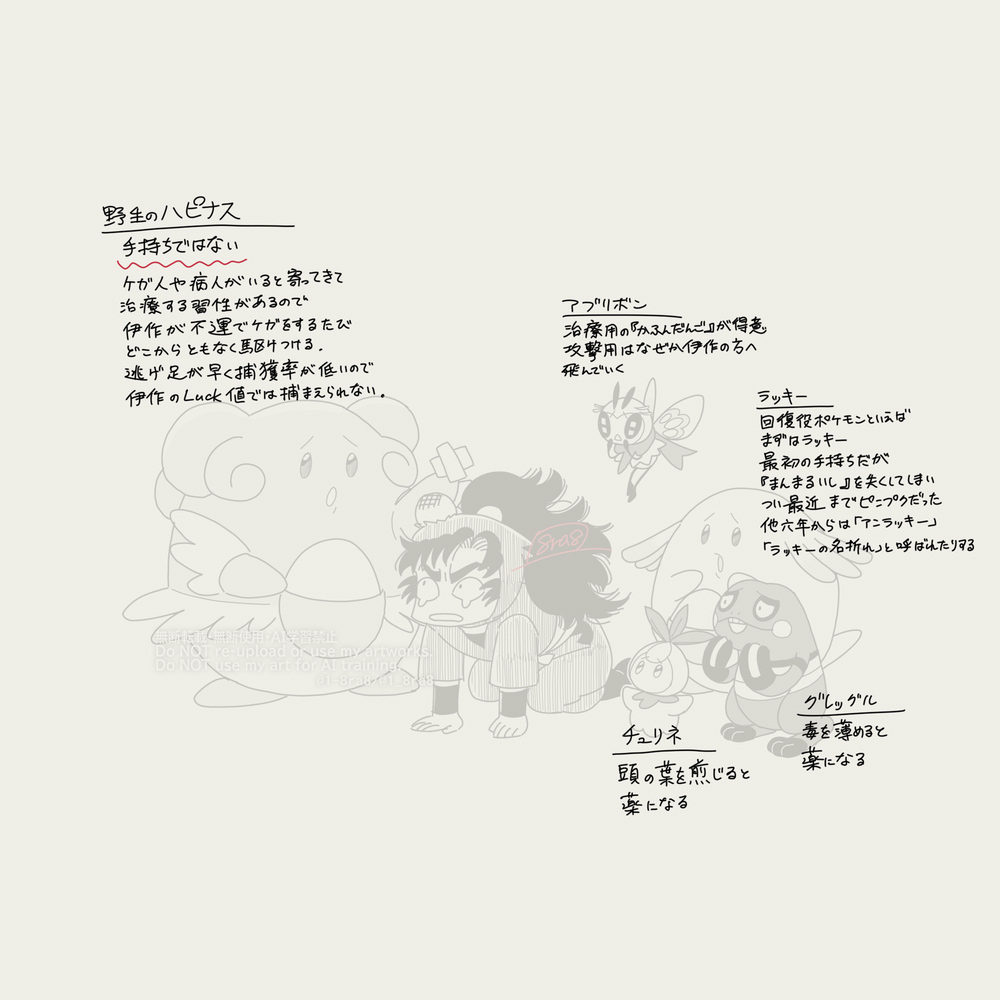 野生のハピナス
手持ちではない
ケガ人や病人がいると寄ってきて
治療する習性があるので
伊作が不運でケガをするたび
どこからともなく駆けつける。
逃げ足が早く捕獲率が低いので
伊作のLuck値では捕まえられない。
アブリボン
治療用の『かふんだんご』が得意。
攻撃用はなぜか伊作の方へ
飛んでいく
ラッキー
回復役ポケモンといえば
まずはラッキー
最初の手持ちだが
『まんまるいし』を失くしてしまい
つい最近までピンプクだった
他六年からは「アンラッキー」
「ラッキーの名折れ」と呼ばれたりする
8ra8
無断転載・無断使用・AI学習禁止
Do NOT re-upload or use my artworks.
Do NOT use my art for AI training.
グレッグル
毒を薄めると
薬になる
チュリネ
頭の葉を煎じると
薬になる